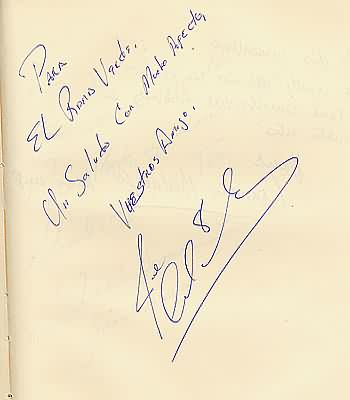 Para
El Ramo Verde,
Un Saludo Con Mucho Afecto,
Vuestro Amigo,